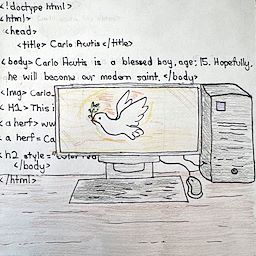 <!doctype html>
<html>
<head>
<title> Carlo Acutis </title>
<body> Carlo Acutis is a blessed boy, age; 15. Hopefully,
he will become our modern saint. </body>
<Img> Carlo
< H1> This i
< a herf> ww
< a herf= Ca
< h2 style=
</body>
</html>